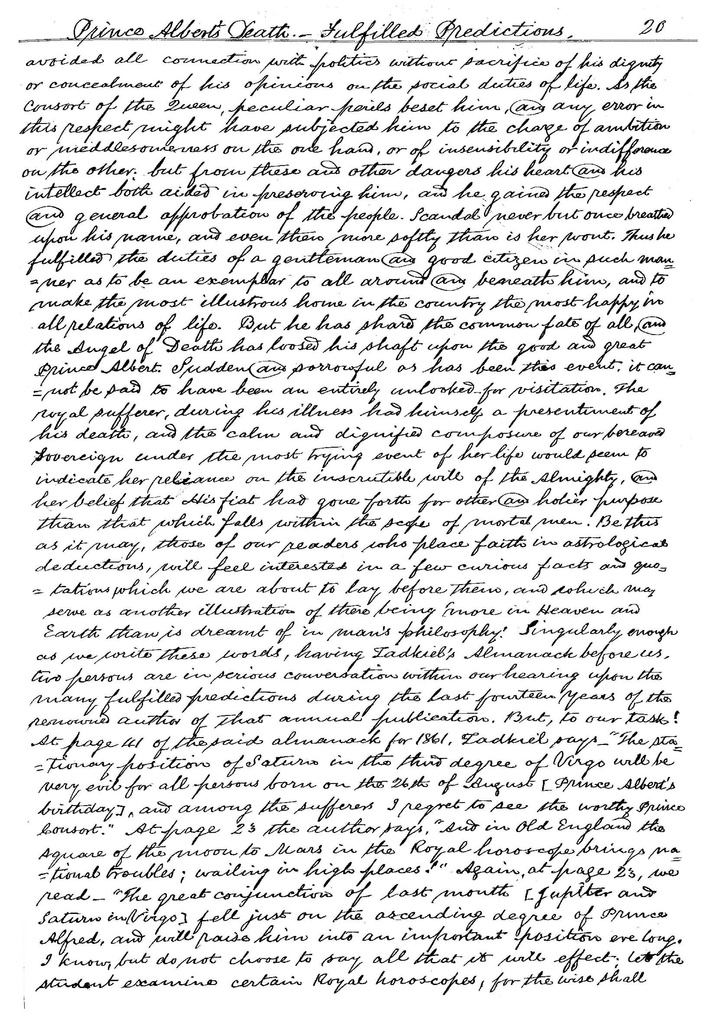 Prince Albert's Death. — Fulfilled Predictions. 20
avoided all connection with politics without sacrifice of his dignity
or concealment of his opinions on the social duties of life. As the
Consort of the Queen, peculiar perils beset him, and any error in
this respect might have subjected him to the charge of ambition
or meddlesomeness on the one hand, or of insensibility or indifference
on the other; but from these and other dangers his heart and his
intellect both aided in preserving him, and he gained the respect
and general approbation of the people. Scandal never but once breathed
upon his name, and even then more softly than is her wont. Thus he
fulfilled the duties of a gentleman and good citizen in such man=
=ner as to be an exemplar to all around and beneath him, and to
make the most illustrous home in the country the most happy in
all relations of life. But he has shard the common fate of all, and
the Angel of Death has loosed his shaft upon the good and great
Prince Albert. Sudden and sorrowful as has been this event, it can=
=not be said to have been an entirely unlooked-for visitation. The
royal sufferer, during his illness had himself a presentiment of
his death, and the calm and dignified composure of our bereaved
Sovereign under the most trying event of her life would seem to
indicate her reliance on the inscrutible will of the Almighty, and
her belief that His fiat had gone forth for other and holier purpose
than that which falls within the scope of mortal men. Be this
as it may, those of our readers who place faith in astrological
deductions, will feel interested in a few curious facts and quo=
=tations which we are about to lay before them, and which may
serve as another illustration of there being "more in Heaven and
Earth than is dreamt of in man's philosophy." Singularly enough
as we write these words, having Zadkiel's Almanack before us,
two persons are in serious conversation within our hearing upon the
many fulfilled predictions during the last fourteen years of the
renowned author of that annual publication. But, to our task!
At page 41 of the said almanack for 1861, Zadkiel says — "The sta=
=tionary position of Saturn in the third degree of Virgo will be
very evil for all persons born on the 26th of August [Prince Albert's
birthday], and among the sufferers I regret to see the worthy Prince
Consort." At page 23 the author says, "And in Old England the
square of the moon to Mars in the Royal horoscope brings na=
=tional troubles; wailing in high places!" Again, at page 23, we
read — "The great conjunction of last month [Jupiter and
Saturn in Virgo] fell just on the ascending degree of Prince
Alfred, and will raise him into an important position ere long.
I know, but do not choose to say all that it will effect; let the
student examine certain Royal horoscopes, for the wise shall